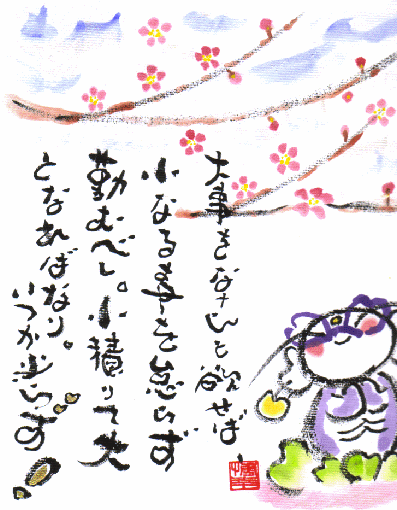 大事をなさんと欲せば、
小なる事を怠らず
勤むべし。小積りて大
となればなり。
いつか必らず